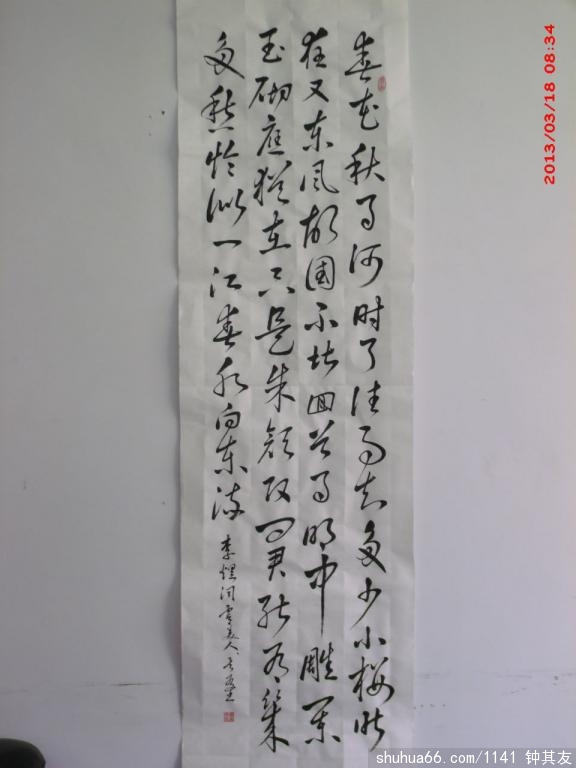 春花秋月何时了往事知多少小楼昨
夜又东风故国不堪回首月明中雕阑
玉砌应犹在只是朱颜改问君能有几
多愁恰似一江春水向东流
李煜词虞美人
2013/03/18 08:34
shuhua66.com/1141 钟其友